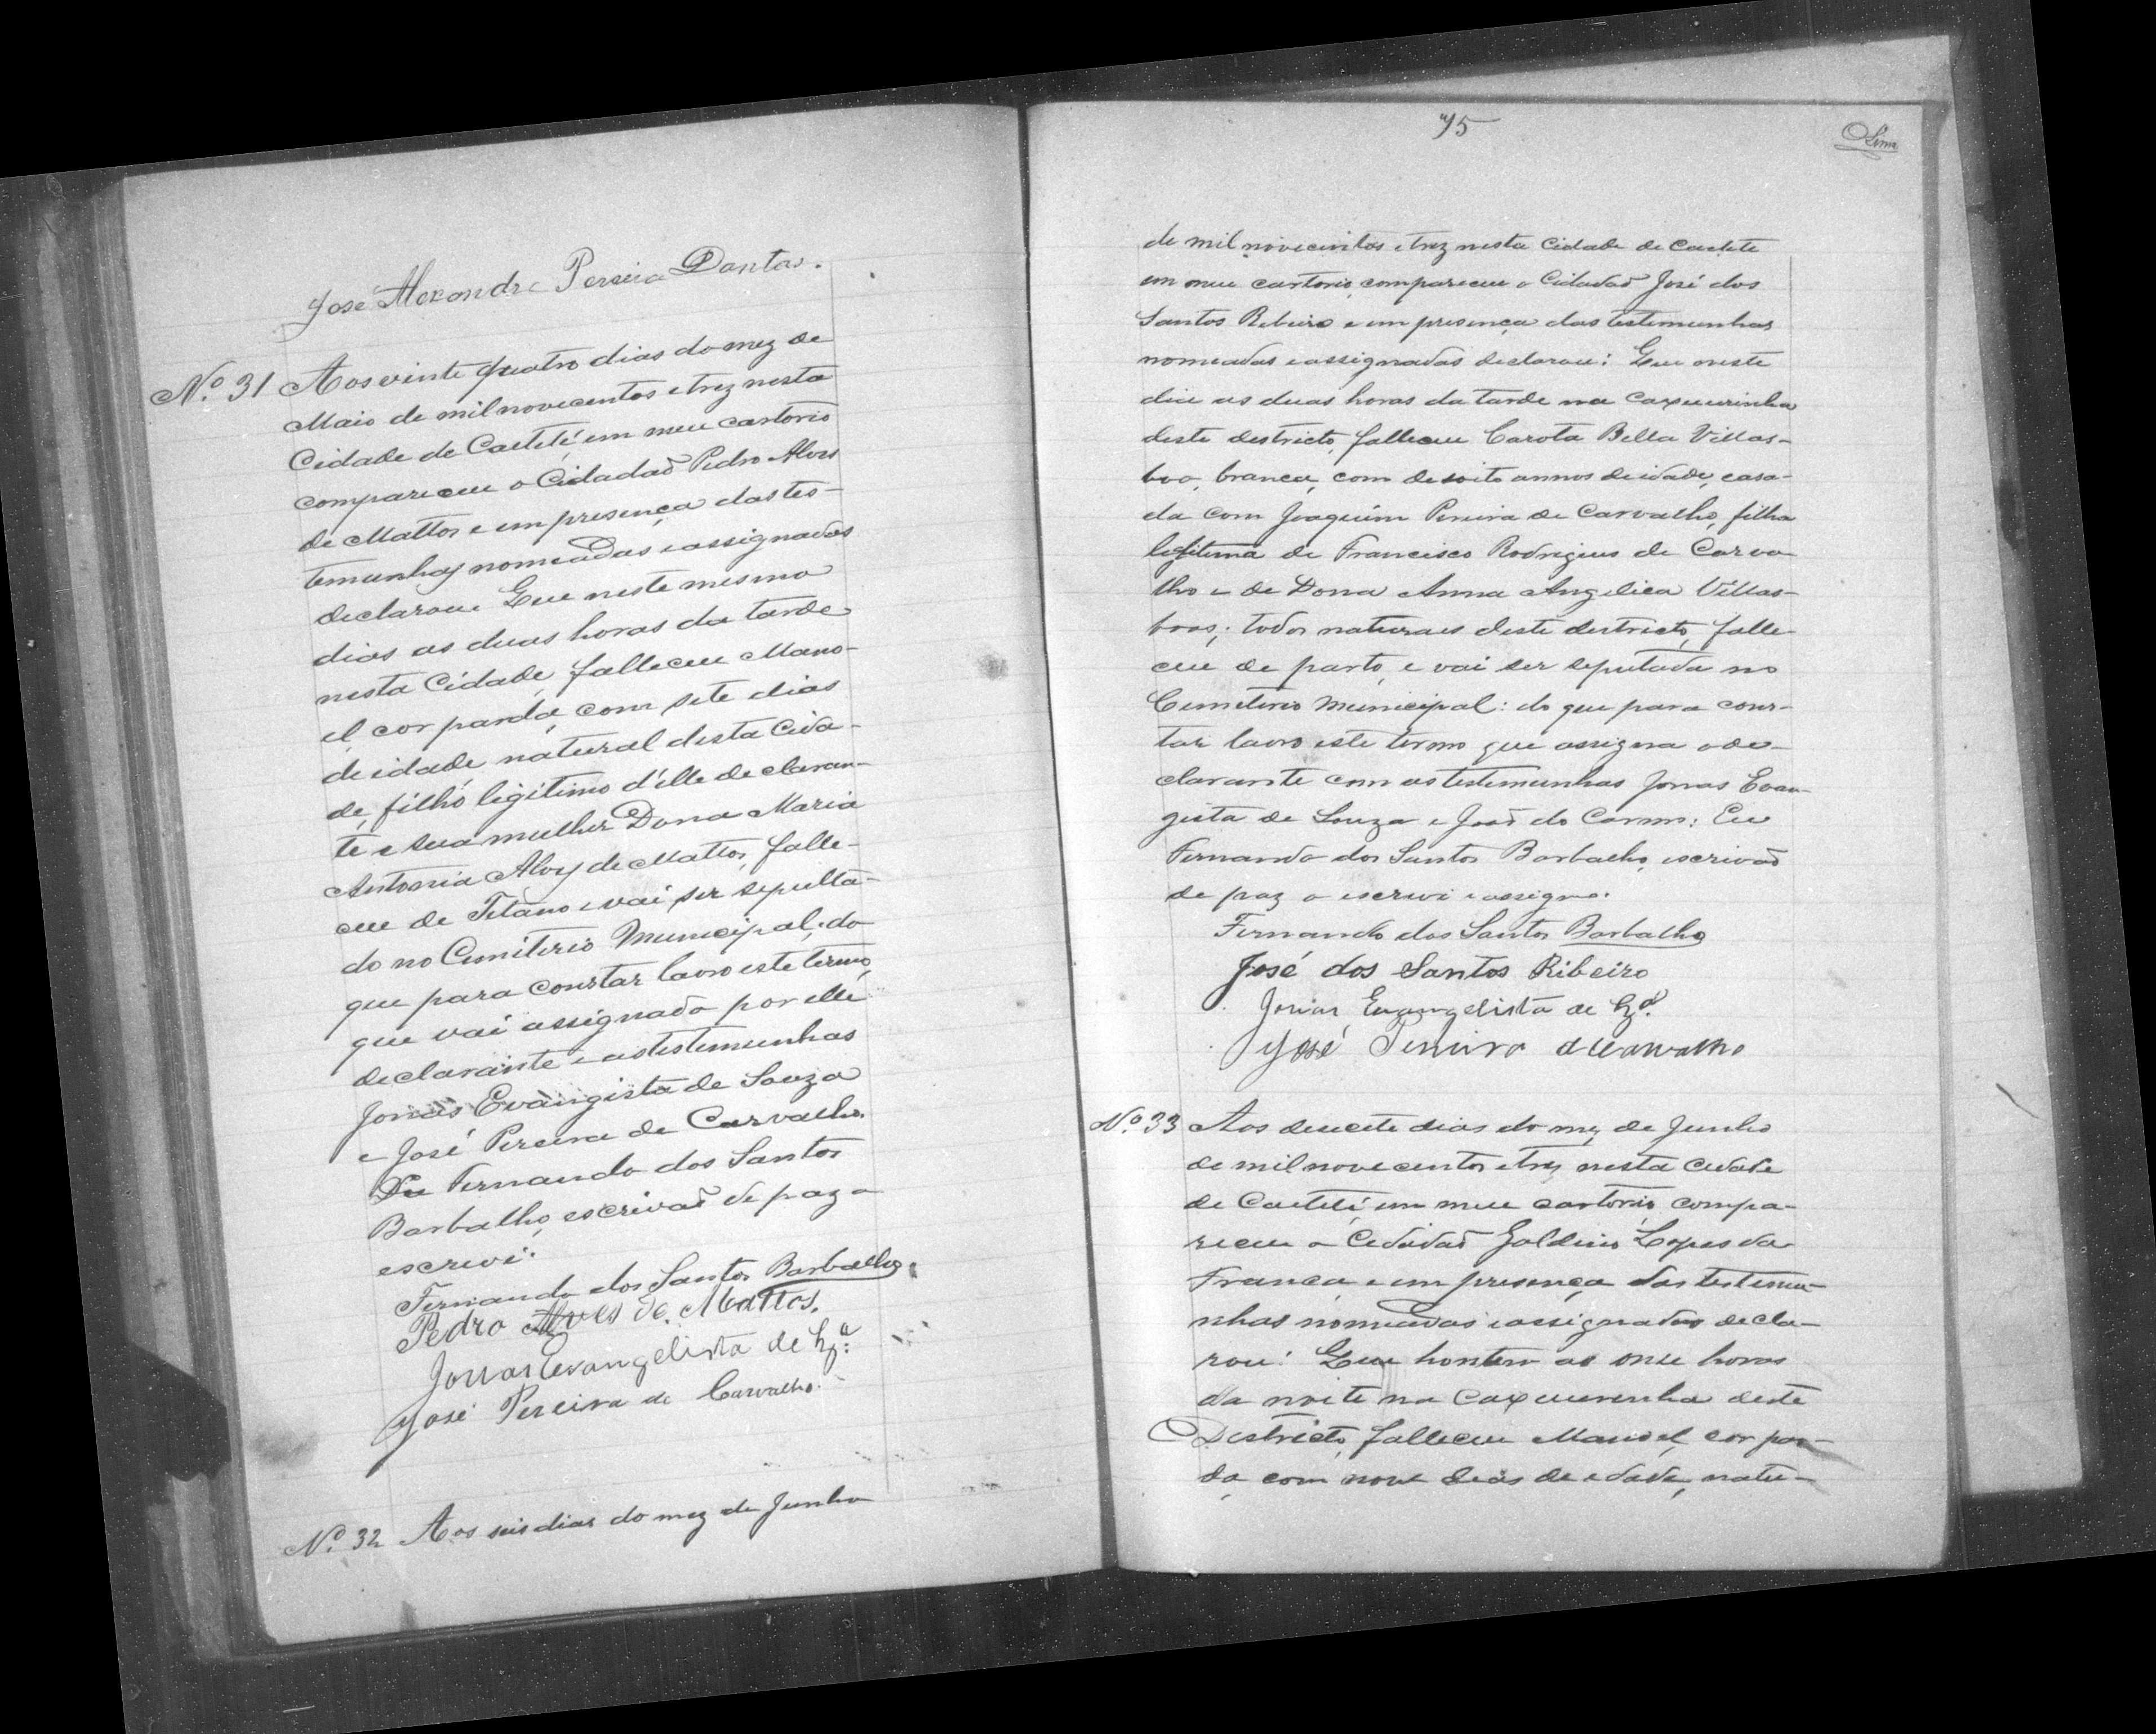 José Alexandre Pereira Dantas.
Nº 31 Aos vinte quatro dias do mez de
Maio de mil novecentos e trez nesta
Cidade de Caetité, em meu cartorio
compareceu o Cidadaõ Pedro Alves
de Mattos e em presença das tes-
temunhas nomeadas e assignadas
declarou: Que neste mesmo
dias as duas horas da tarde
nesta Cidade, falleceu Mano-
el, cor parda, com sete dias
de idade natural desta Cida-
de, filho legitimo d'elle declaran-
te e sua mulher Dona Maria
Antonia Alves de Mattos, falle-
ceu de Tetano e vai ser sepulta-
do no Cemiterio Municipal; do
que para constar lavro este termo,
que vai assignado por elle
declarante e as testemunhas
Jonas Evangista de Souza
e José Pereira de Carvalho.
Eu Fernando dos Santos
Barbalho, escrivaõ de paz o
escrevi.
Fernando dos Santos Barbalho.
Pedro Alves de Mattos.
Jonas Evangelista de Sza.
José Pereira de Carvalho.
Nº 32 Aos seis dias do mez de Junho
75
Lima
de mil novecentos e trez nesta Cidade de Caetete
em meu cartorio, compareceu o Cidadaõ José dos
Santos Ribeiro e em presença das testemunhas
nomeadas e assignadas declarou: Que neste
dia as duas horas da tarde na Caxueirinha
deste destricto, falleceu Carota Bella Villas-
boa, branca, com desoito annos de idade, casa-
da com Joaquim Pereira de Carvalho, filha
legitima de Francisco Rodrigues de Carva
lho e de Dona Anna Angelica Villas-
boas; todos naturaes deste destricto, falle-
ceu de parto, e vai ser sepultada no
Cemiterio Municipal: do que para cons-
tar lavro este termo que assigna o de-
clarante com as testemunhas Jonas Evan-
gista de Souza e Joaõ do Carmo: Eu
Fernando dos Santos Barbalho, escrivaõ
de paz o escrevi e assigno.
Fernando dos Santos Barbalho
José dos Santos Ribeiro
Jonas Evangelista de Sza.
José Pereira de Carvalho
Nº 33 Aos desecete dias do mez de Junho
de mil novecentos e trez nesta Cidade
de Caetité, em meu cartorio, compa-
receu o Cidadaõ Galdino Lopes da
Franca, e em presença das testemu-
nhas nomeadas e assignadas decla-
rou: Que hontem as onse horas
da noite na Caxueirinha deste
Destricto, falleceu Manoel, cor par-
da, com nove dias de edade, natu-